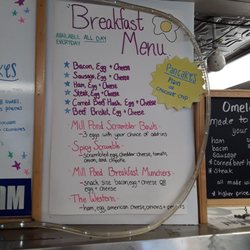 Breakfast
Menu
AVAILABLE ALL DAY
EVERYDAY
Bacon, Egg + Cheese
Sausage, Egg + Cheese
Ham, Egg + Cheese
Steak, Egg + Cheese
Corned Beef Hash, Egg + Cheese
Beef Brisket, Egg + Cheese
Pancakes
PLAIN
or
CHOCOLATE CHIP
Mill Pond Scrambler Bowls
- 3 eggs with your choice of add ins
Spicy Scramble
- Scrambled egg, cheddar cheese, tomato,
onion, and
Mill Pond Breakfast Munchers
- snack size bacon, egg + cheese OR
egg + cheese
The Western
- ham, egg, american cheese, onions + peppers
akes
Omel
made to
your
ham
bacon
sausage
Corned beef h
all made w
+ higher price